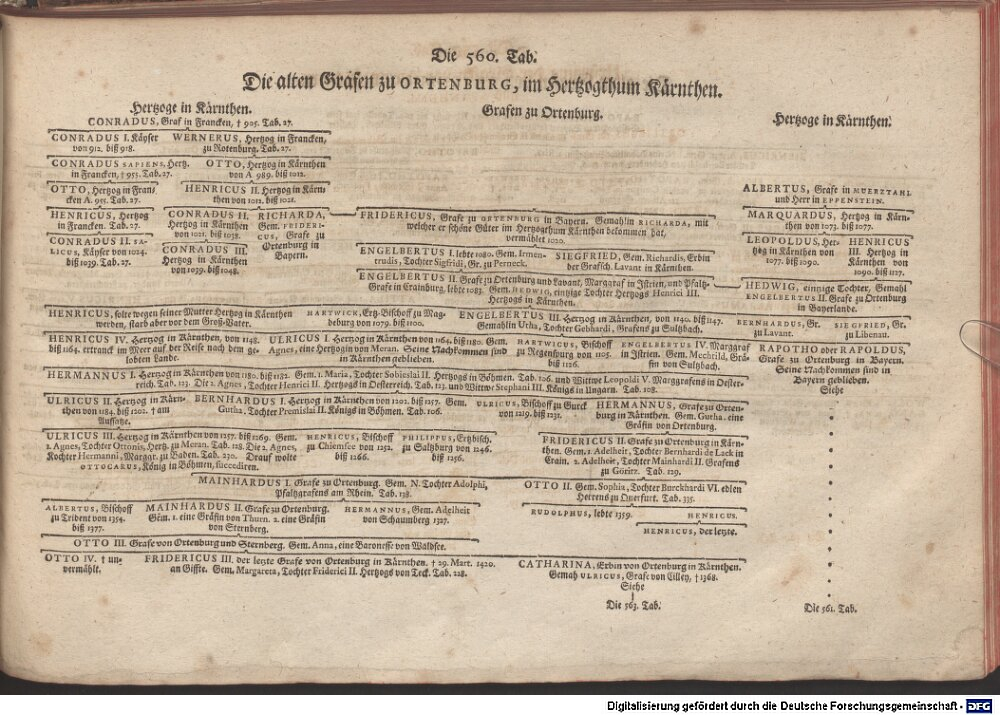 Die 560. Tab.
Die alten Grafen zu ORTENBURG, im Hertzogthum Kärnthen.
Hertzoge in Kärnthen.
Grafen zu Ortenburg.
Hertzoge in Kärnthen.
CONRADUS, Graf in Francken, † 905. Tab. 27.
CONRADUS I. Käyser
von 912. biß 918.
WERNERUS, Hertzog in Francken,
zu Rotenburg. Tab. 27.
CONRADUS SAPIENS, Hertz.
in Francken, † 955. Tab. 27.
OTTO, Hertzog in Kärnthen
von A 989. biß 1012.
OTTO, Hertzog in Fran-
cken A. 955. Tab. 27.
HENRICUS II. Hertzog in Kärn-
then von 1012. biß 1021.
HENRICUS, Hertzog
in Francken. Tab. 27.
CONRADUS II.
Hertzog in Kärnthen
von 1021. biß 1038.
RICHARDA,
Gem. FRIDERI-
CUS, Grafe zu
Ortenburg in
Bayern.
CONRADUS II. SA-
LICUS, Käyser von 1024.
biß 1039. Tab. 27.
CONRADUS III.
Hertzog in Kärnthen
von 1039. biß 1048.
FRIDERICUS, Grafe zu ORTENBURG in Bayern. Gemahlin RICHARDA, mit
welcher er schöne Güter im Hertzogthum Kärnthen bekommen hat,
vermählet 1020.
ENGELBERTUS I. lebte 1080. Gem. Irmen-
trudis, Tochter Sigfridi, Gr. zu Perneck.
SIEGFRIED, Gem. Richardis, Erbin
der Grafsch. Lavant in Kärnthen.
ENGELBERTUS II. Grafe zu Ortenburg und Lavant, Marggraf in Istrien, und Pfaltz-
Grafe in Crainburg, lebte 1083. Gem. HEDWIG, eintzige Tochter Hertzogs Henrici III.
Hertzogs in Kärnthen.
ALBERTUS, Grafe in MUERZTAHL
und Herr in EPPENSTEIN.
MARQUARDUS, Hertzog in Kärn-
then von 1073. biß 1077.
LEOPOLDUS, Her-
tzog in Kärnthen von
1077. biß 1090.
HENRICUS
III. Hertzog in
Kärnthen von
1090. biß 1127.
HEDWIG, eintzige Tochter, Gemahl
ENGELBERTUS II. Grafe zu Ortenburg
in Bayerlande.
HENRICUS, solte wegen seiner Mutter Hertzog in Kärnthen
werden, starb aber vor dem Groß-Vater.
HARTWICK, Ertz-Bischof zu Mag-
deburg von 1079. biß 1100.
ENGELBERTUS III. Hertzog in Kärnthen, von 1140. biß 1147.
Gemahlin Utha, Tochter Gebhardi, Grafens zu Sultzbach.
BERNHARDUS, Gr.
zu Lavant.
SIEGFRIED, Gr.
zu Liebenau.
HENRICUS IV. Hertzog in Kärnthen, von 1148.
biß 1164. ertranck im Meer auf der Reise nach dem ge-
lobten Lande.
ULRICUS I. Hertzog in Kärnthen von 1164. biß 1180. Gem.
Agnes, eine Hertzogin von Meran. Seine Nachkommen sind
in Kärnthen geblieben.
HARTWICUS, Bischoff
zu Regenburg von 1105. biß
1126.
ENGELBERTUS IV. Marggraf
in Istrien. Gem. Mechtild, Grä-
fin von Sultzbach.
RAPOTHO oder RAPOLDUS,
Grafe zu Ortenburg in Bayern.
Seine Nachkommen sind in
Bayern geblieben.
Siehe
HERMANNUS I. Hertzog in Kärnthen von 1180. biß 1182. Gem. 1. Maria, Tochter Sobieslai II. Hertzogs in Böhmen. Tab. 106. und Wittwe Leopoldi V. Marggrafens in Oester-
reich. Tab. 123. Die 2. Agnes, Tochter Henrici II. Hertzogs in Oesterreich. Tab. 123. und Wittwe Stephani III. Königs in Ungarn. Tab. 108.
ULRICUS II. Hertzog in Kärn-
then von 1184. biß 1202. † am
Aussatze.
BERNHARDUS I. Hertzog in Kärnthen von 1202. biß 1257. Gem.
Gutha, Tochter Premislai II. Königs in Böhmen. Tab. 106.
ULRICUS, Bischoff zu Gurck
von 1219. biß 1231.
HERMANNUS, Grafe zu Orten-
burg in Kärnthen. Gem. Gutha, eine
Gräfin von Ortenburg.
ULRICUS III. Hertzog in Kärnthen von 1257. biß 1269. Gem.
1. Agnes, Tochter Ottonis, Hertz. zu Meran. Tab. 128. Die 2. Agnes,
Tochter Hermanni, Marggr. zu Baden. Tab. 230. Drauf wolte
OTTOCARUS, König in Böhmen, succediren.
HENRICUS, Bischoff
zu Chiemsee von 1252.
biß 1266.
PHILIPPUS, Ertzbisch.
zu Saltzburg von 1246.
biß 1256.
FRIDERICUS II. Grafe zu Ortenburg in Kärn-
then. Gem. 1 Adelheit, Tochter Bernhardi de Lack in
Crain. 2. Adelheit, Tochter Mainhardi II. Grafens
zu Göritz. Tab. 129.
MAINHARDUS I. Grafe zu Ortenburg. Gem. N. Tochter Adolphi,
Pfaltzgrafens am Rhein. Tab. 138.
OTTO II. Gem. Sophia, Tochter Burckhardi VI. edlen
Herrens zu Querfurt. Tab. 335.
ALBERTUS, Bischoff
zu Trident von 1354.
biß 1377.
MAINHARDUS II. Grafe zu Ortenburg.
Gem. 1. eine Gräfin von Thurn. 2. eine Gräfin
von Sternberg.
HERMANNUS, Gem. Adelheit
von Schaumberg 1327.
RUDOLPHUS, lebte 1359.
HENRICUS.
HENRICUS, der letzte.
OTTO III. Grafe von Ortenburg und Sternberg. Gem. Anna, eine Baronesse von Waldsee.
OTTO IV. † un-
vermählt.
FRIDERICUS III. der letzte Grafe von Ortenburg in Kärnthen. † 29. Mart. 1420.
an Giffte. Gem. Margareta, Tochter Friderici II. Hertzogs von Teck. Tab. 228.
CATHARINA, Erbin von Ortenburg in Kärnthen.
Gemahl ULRICUS, Grafe von Cilley, † 1368.
Siehe
Die 563. Tab.
Die 561. Tab.
Digitalisierung gefördert durch die Deutsche Forschungsgemeinschaft - DFG